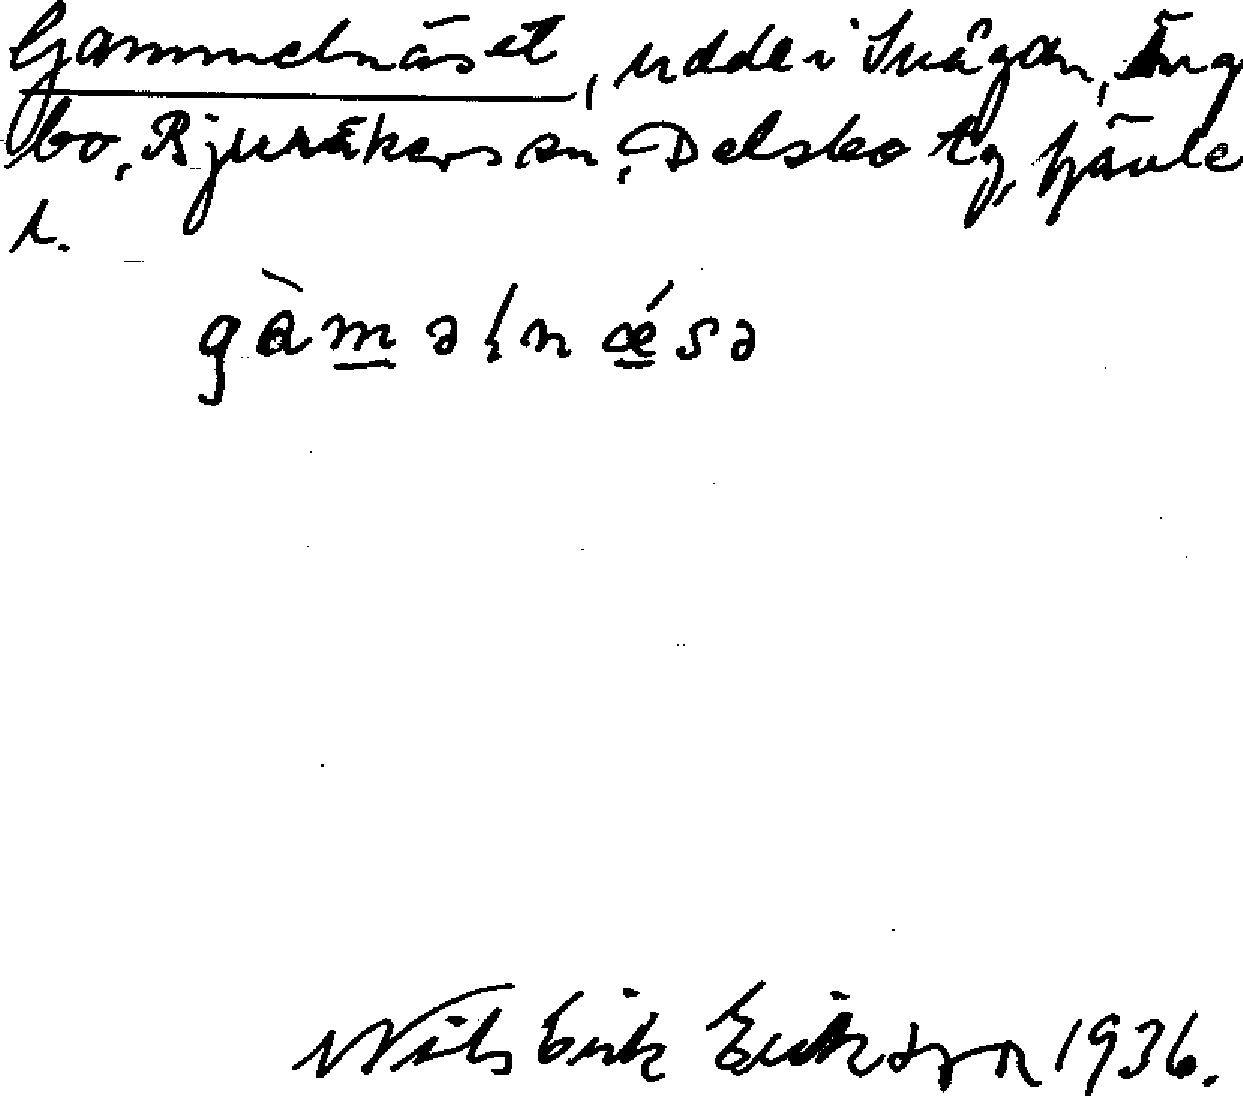 Gammelnäset, udde i Svågan, Äng
bo, Bjuråkers sn, Delsbo tg, Gävle
l.
gàməlnǽsə
Nils Erik Eriksson 1936.